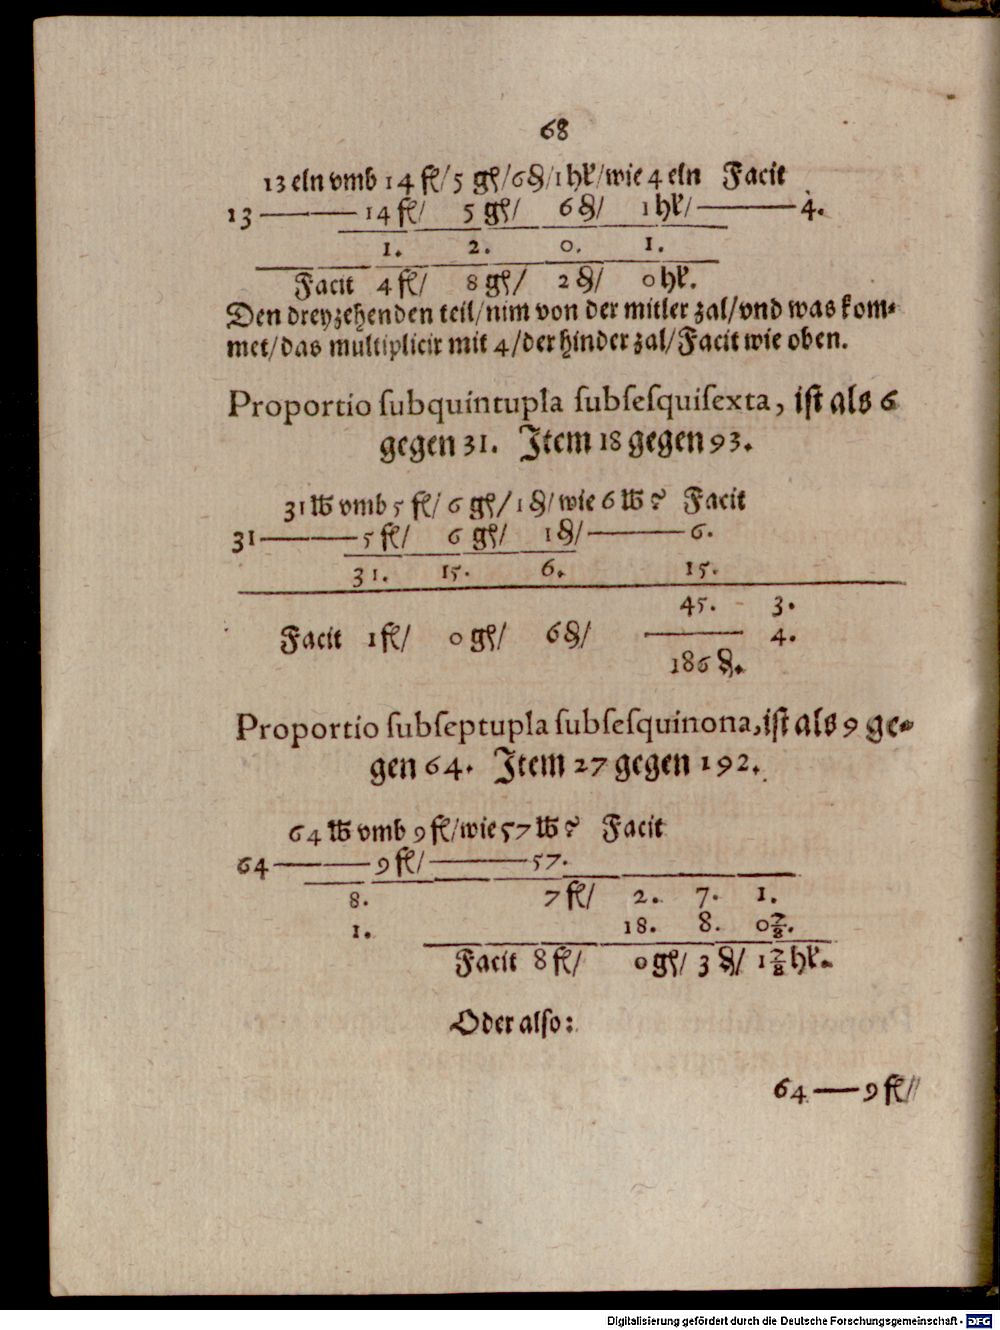 68
13 eln vmb 14 fl/ 5 gſ/ 6 ₰/ 1 hl̕/ wie 4 eln Facit
13 ——— 14 fl/ 5 gſ/ 6 ₰/ 1 hl̕/ ——— 4.
1. 2. 0. 1.
Facit 4 fl/ 8 gſ/ 2 ₰/ 0 hl̕.
Den dreyzehenden teil/ nim von der mitler zal/ vnd was kom⸗
met/ das multiplicir mit 4/ der hinder zal/ Facit wie oben.
Proportio ſubquintupla ſubſeſquiſexta, iſt als 6
gegen 31. Item 18 gegen 93.
31 ℔ vmb 5 fl/ 6 gſ/ 1 ₰/ wie 6 ℔ ? Facit
31 ——— 5 fl/ 6 gſ/ 1 ₰/ ——— 6.
31. 15. 6. 15.
45. 3.
Facit 1 fl/ 0 gſ/ 6 ₰/ ——— 4.
186 ₰.
Proportio ſubſeptupla ſubſeſquinona, iſt als 9 ge⸗
gen 64. Item 27 gegen 192.
64 ℔ vmb 9 fl/ wie 57 ℔ ? Facit
64 ——— 9 fl/ ——— 57.
8. 7 fl/ 2. 7. 1.
1. 18. 8. 0 7/8.
Facit 8 fl/ 0 gſ/ 3 ₰/ 1 7/8 hl̕.
Oder alſo:
64 — 9 fl/
Digitalisierung gefördert durch die Deutsche Forschungsgemeinschaft - DFG